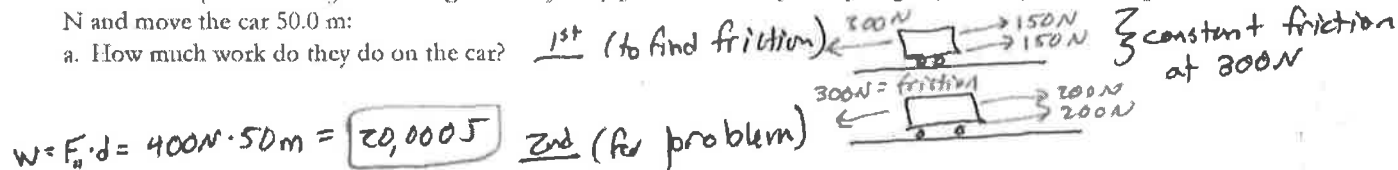 N and move the car 50.0 m:
a. How much work do they do on the car?
1st (to find friction)
300N
150N
150N
} constant friction
at 300N
W = F〃·d = 400N·50m = 20,000J
2nd (for problem)
300N = friction
200N
200N